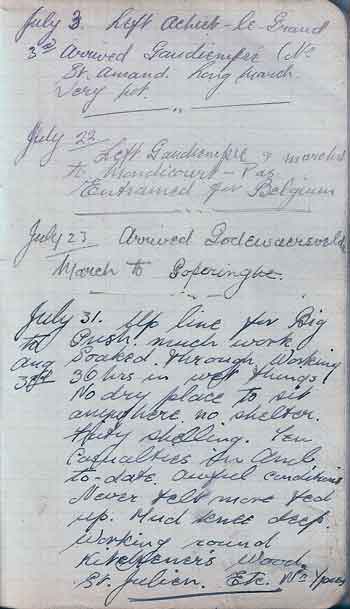 July 3. Left Achiet-le-Grand
3rd Arrived Gaudiempré (Nr
St. Amand. Long march.
Very hot.
July 22
Left Gaudiempré & marched
to Mondicourt - Pas.
Entrained for Belgium
July 23 Arrived Godewaersvelde
March to Poperinghe.
July 31. Up line for Big
to Push. much work
Aug Soaked through, Working
3rd 36 hrs in wet things
No dry place to sit
anywhere no shelter.
Hvty shelling. Ten
Casualties in Amb.
to-date. Awful conditions
Never felt more fed
up. Mud knee deep.
Working round
Kitchener's Wood,
St. Julien. Etc. Nr Ypres